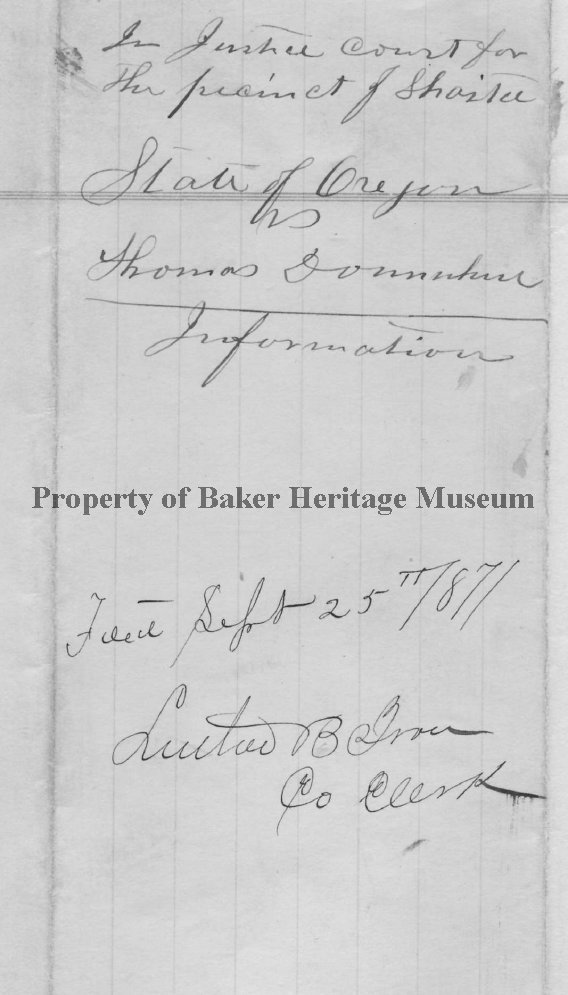 In Justice Court for
the precinct of Shasta
State of Oregon
vs
Thomas
Information
Property of Baker Heritage Museum
Filed Sept 25th/871
B Ison
Co Clerk